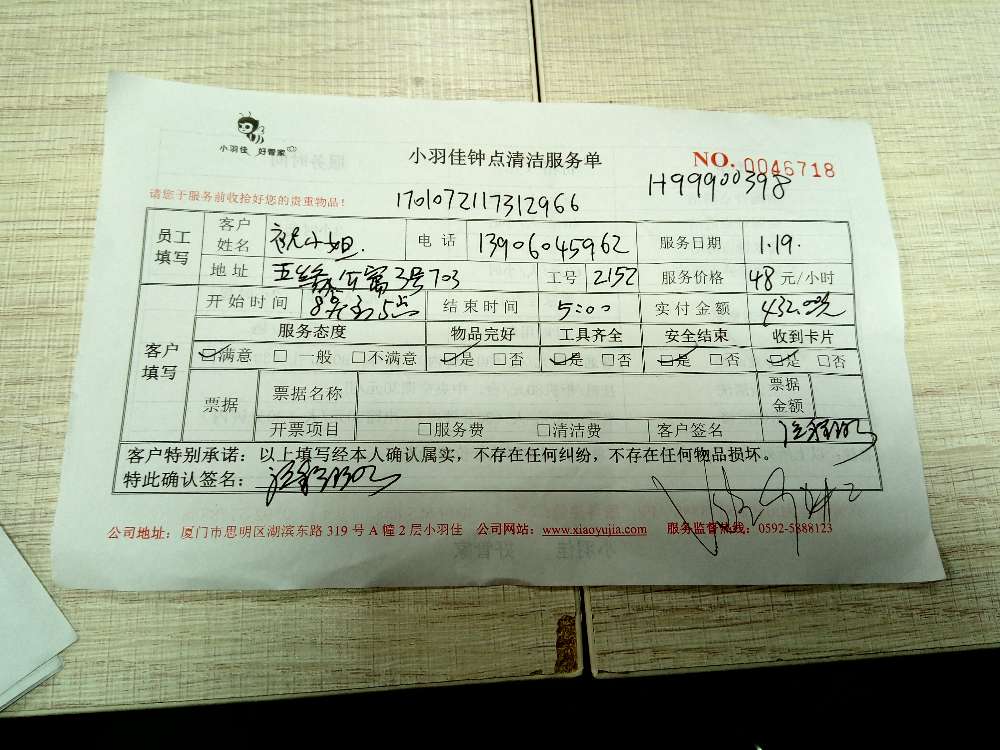 小羽佳 好管家
小羽佳钟点清洁服务单
NO. 0046718
H99900398
请您于服务前收拾好您的贵重物品!
1701072117312966
员工填写 客户姓名 小姐. 电话 13906045962 服务日期 1.19.
地址 公寓3号703 工号 2152 服务价格 48 元/小时
客户填写 开始时间 8点到5点 结束时间 5:00 实付金额 432.00元
服务态度 物品完好 工具齐全 安全结束 收到卡片
☑满意 □ 一般 □不满意 ☑是 □否 ☑是 □否 ☑是 □否 ☑是 □否
票据 票据名称 票据金额
开票项目 □服务费 □清洁费 客户签名
客户特别承诺:以上填写经本人确认属实,不存在任何纠纷,不存在任何物品损坏。
特此确认签名:
公司地址:厦门市思明区湖滨东路 319 号 A 幢 2 层小羽佳 公司网站:www.xiaoyujia.com 服务监督热线:0592-5888123